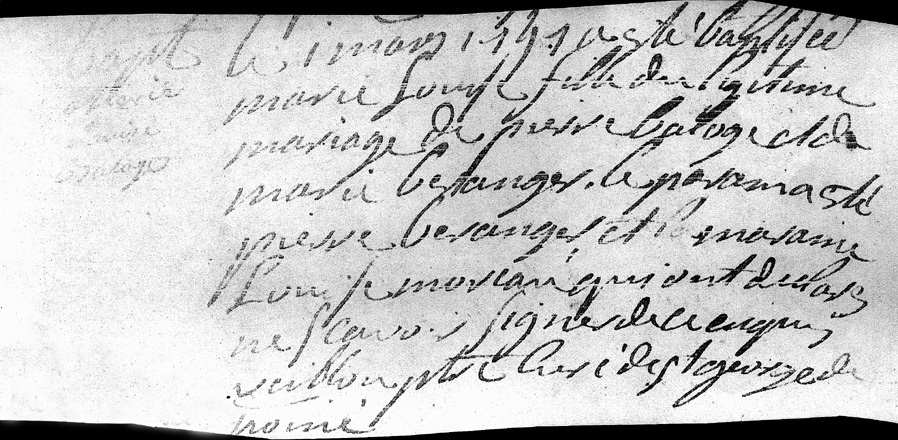 bapt
marie
Louise
baloge
le 1 mars 1771 a esté baptisée
marie Louise fille du legitime
mariage de pierre baloge et de
marie beranger. le parain a esté
pierre beranger, et la maraine
Louise moreau qui ont declaré
ne scavoir signer de ce enquis
ptre curé de st george de
noiné